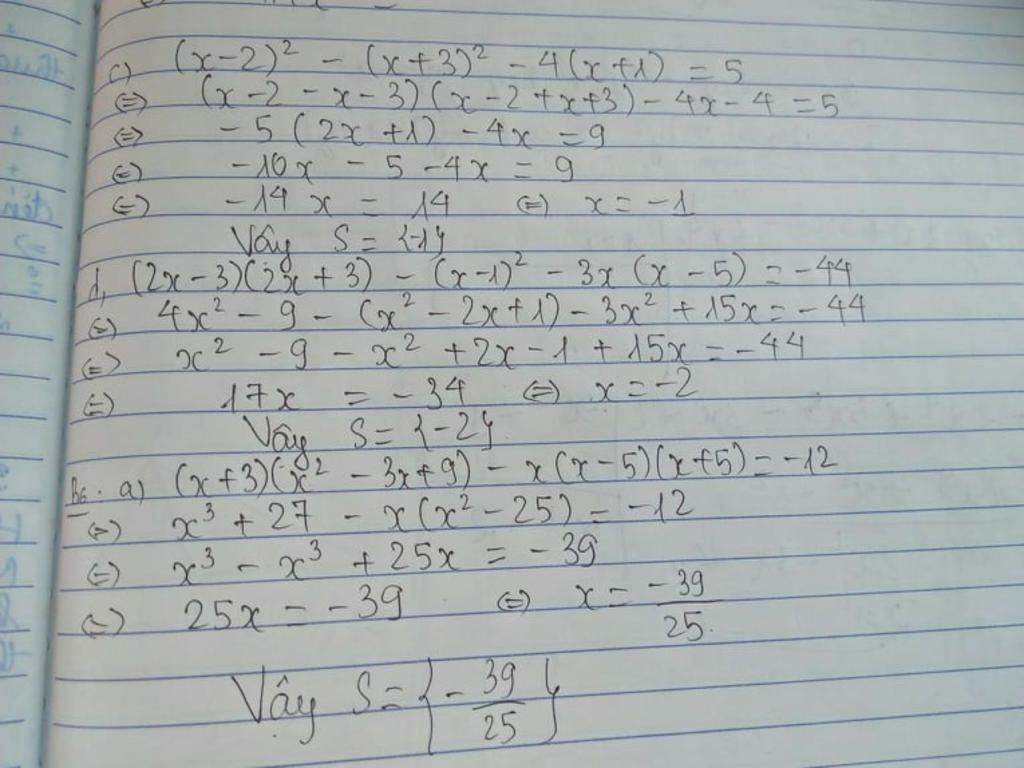 c) (x-2)² - (x+3)² - 4(x+1) = 5
⇔ (x-2-x-3)(x-2+x+3) - 4x - 4 = 5
⇔ -5(2x+1) - 4x = 9
⇔ -10x - 5 - 4x = 9
⇔ -14x = 14 ⇔ x = -1
Vậy S = {-1}
d, (2x-3)(2x+3) - (x-1)² - 3x(x-5) = -44
⇔ 4x² - 9 - (x² - 2x+1) - 3x² + 15x = -44
⇔ x² - 9 - x² + 2x - 1 + 15x = -44
⇔ 17x = -34 ⇔ x = -2
Vậy S = {-2}.
B6. a) (x+3)(x² - 3x+9) - x(x-5)(x+5) = -12
⇔ x³ + 27 - x(x² - 25) = -12
⇔ x³ - x³ + 25x = -39
⇔ 25x = -39 ⇔ x = -39/25.
Vậy S = {-39/25}